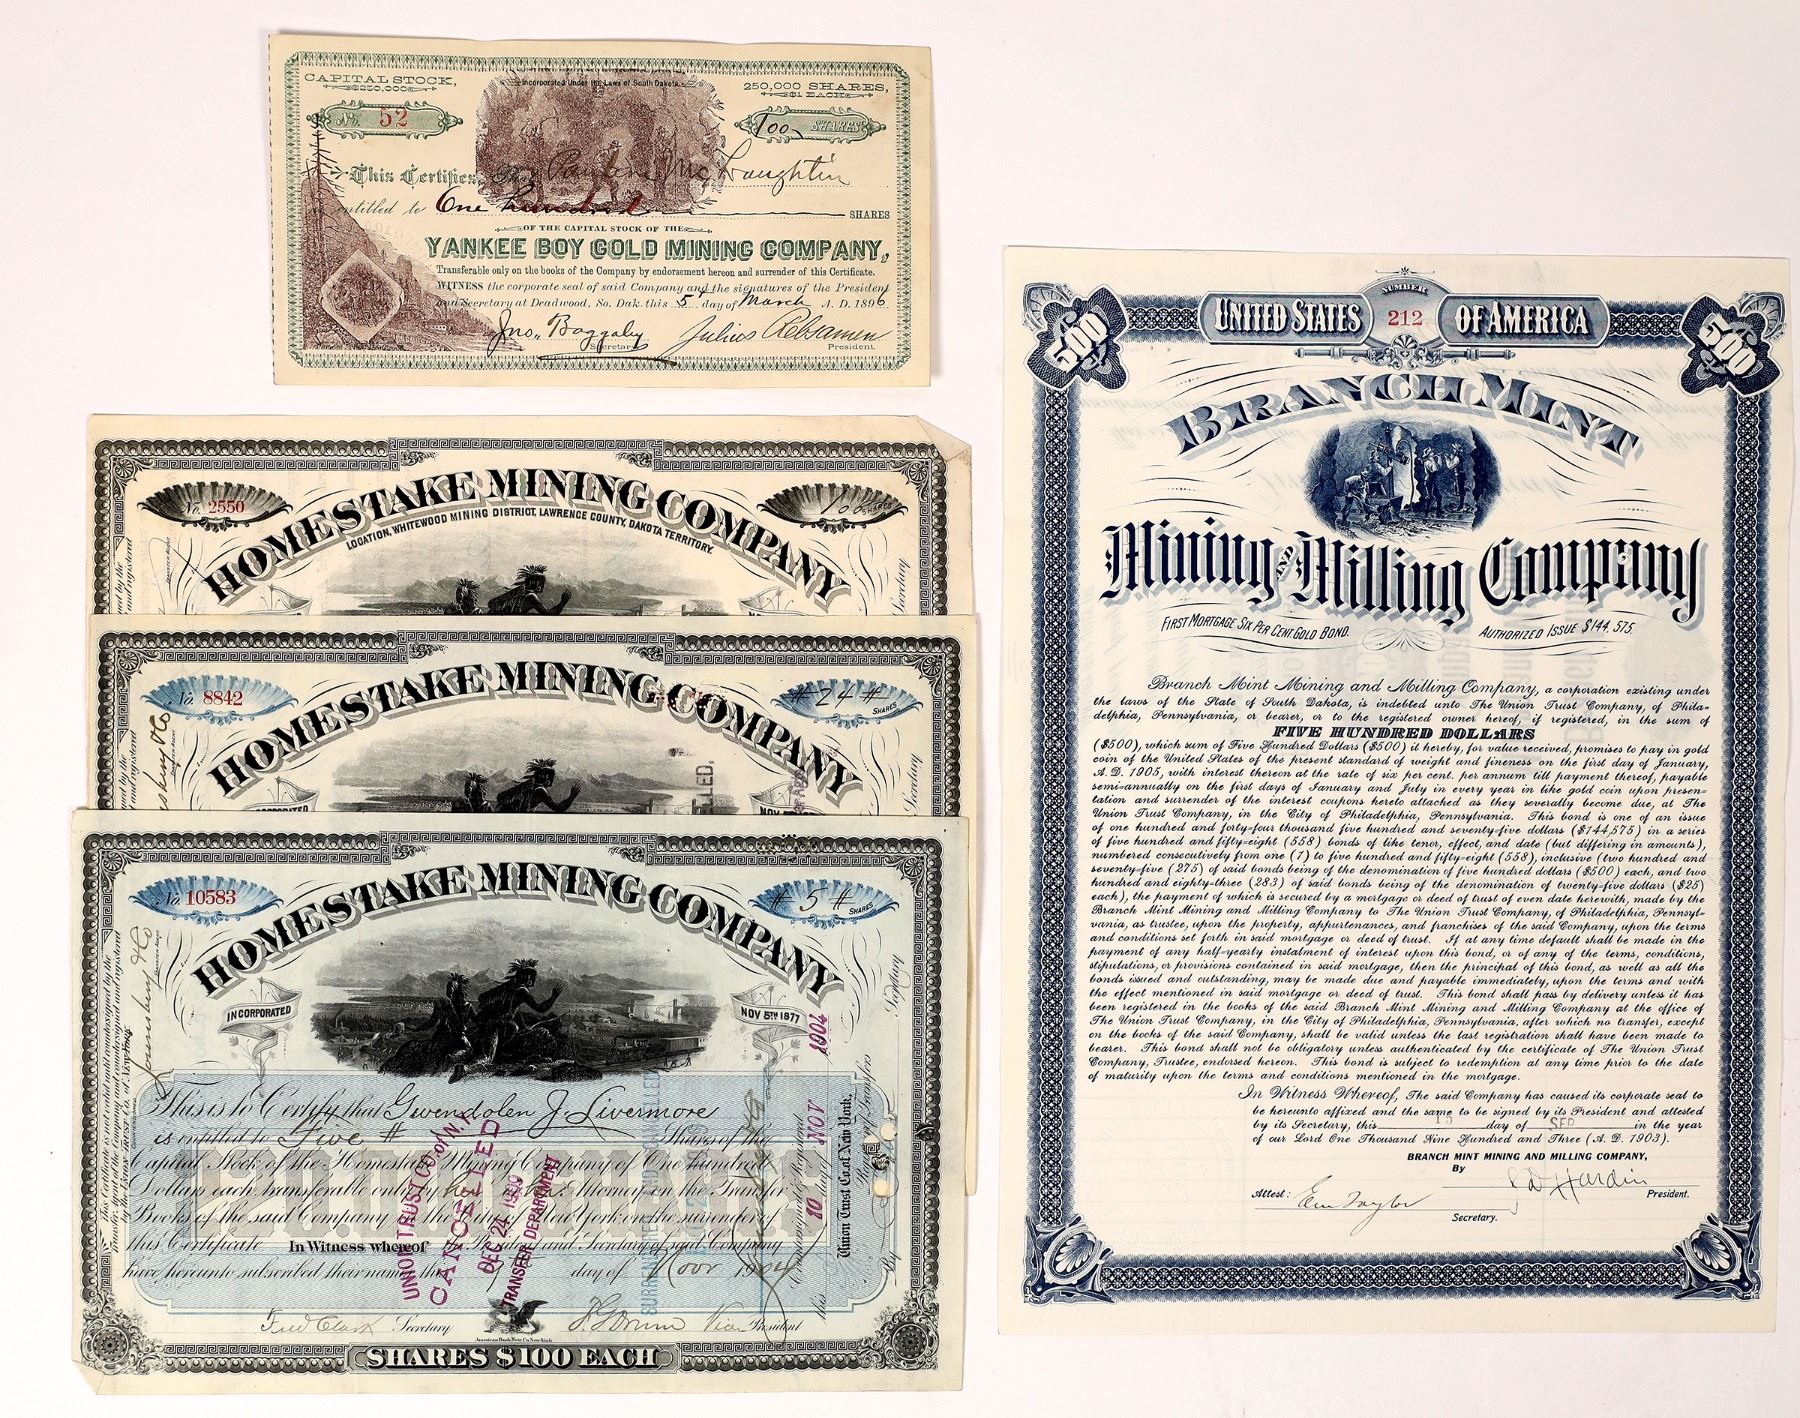 CAPITAL STOCK,
$250,000
Incorporated Under the Laws of South Dakota.
250,000 SHARES,
$1 EACH
No. 52
100 SHARES
This Certifies Pauline McLaughlin
entitled to One hundred SHARES
OF THE CAPITAL STOCK OF THE
YANKEE BOY GOLD MINING COMPANY,
Transferable only on the books of the Company by endorsement hereon and surrender of this Certificate.
WITNESS the corporate seal of said Company and the signatures of the President
and Secretary at Deadwood, So. Dak. this 5th day of March A. D. 1896
Jno. Baggaley Julius Rebsamen
Secretary President.
No. 2550
100 SHARES
HOMESTAKE MINING COMPANY
LOCATION, WHITEWOOD MINING DISTRICT, LAWRENCE COUNTY, DAKOTA TERRITORY.
Secretary
No. 8842
# 24 # SHARES
HOMESTAKE MINING COMPANY
Secretary
No. 10583
# 5 # SHARES
HOMESTAKE MINING COMPANY
INCORPORATED
NOV 5TH 1877
This is to Certify that Gwendolen J. Livermore
is entitled to Five # Shares of the
Capital Stock of the Homestake Mining Company of One hundred
Dollars each, transferable only by her or her Attorney on the Transfer
Books of the said Company in the City of New York on the surrender of
this Certificate In Witness whereof the President and Secretary of said Company
have hereunto subscribed their names this day of Nov 1904
Fred Clark Secretary Vice President
American Bank Note Co. New York
SHARES $100 EACH
This Certificate is not valid until countersigned by the
Transfer Agent of the Company and also countersigned and registered
by the UNION TRUST CO. of NEW YORK
Countersigned and Registered
this 10 NOV 1904
Union Trust Co. of New York,
Registrar of Transfers
By
Secretary
UNION TRUST CO. OF N.Y.
CANCELLED
DEC 24
TRANSFER DEPARTMENT
SURRENDERED AND CANCELLED
UNITED STATES NUMBER OF AMERICA
212
500
500
BRANCH MINT
Mining and Milling Company
FIRST MORTGAGE SIX PER CENT GOLD BOND. AUTHORIZED ISSUE $144,575.
Branch Mint Mining and Milling Company, a corporation existing under
the laws of the State of South Dakota, is indebted unto The Union Trust Company, of Phila-
delphia, Pennsylvania, or bearer, or to the registered owner hereof, if registered, in the sum of
FIVE HUNDRED DOLLARS
($500), which sum of Five Hundred Dollars ($500) it hereby, for value received, promises to pay in gold
coin of the United States of the present standard of weight and fineness on the first day of January,
A. D. 1905, with interest thereon at the rate of six per cent. per annum till payment thereof, payable
semi-annually on the first days of January and July in every year in like gold coin upon presen-
tation and surrender of the interest coupons hereto attached as they severally become due, at The
Union Trust Company, in the City of Philadelphia, Pennsylvania. This bond is one of an issue
of one hundred and forty-four thousand five hundred and seventy-five dollars ($144,575) in a series
of five hundred and fifty-eight (558) bonds of like tenor, effect, and date (but differing in amounts),
numbered consecutively from one (1) to five hundred and fifty-eight (558), inclusive (two hundred and
seventy-five (275) of said bonds being of the denomination of five hundred dollars ($500) each, and two
hundred and eighty-three (283) of said bonds being of the denomination of twenty-five dollars ($25)
each), the payment of which is secured by a mortgage or deed of trust of even date herewith, made by the
Branch Mint Mining and Milling Company to The Union Trust Company, of Philadelphia, Pennsyl-
vania, as trustee, upon the property, appurtenances, and franchises of the said Company, upon the terms
and conditions set forth in said mortgage or deed of trust. If at any time default shall be made in the
payment of any half-yearly instalment of interest upon this bond, or of any of the terms, conditions,
stipulations, or provisions contained in said mortgage, then the principal of this bond, as well as all the
bonds issued and outstanding, may be made due and payable immediately, upon the terms and with
the effect mentioned in said mortgage or deed of trust. This bond shall pass by delivery unless it has
been registered in the books of the said Branch Mint Mining and Milling Company at the office of
The Union Trust Company, in the City of Philadelphia, Pennsylvania, after which no transfer, except
on the books of the said Company, shall be valid unless the last registration shall have been made to
bearer. This bond shall not be obligatory unless authenticated by the certificate of The Union Trust
Company, Trustee, endorsed hereon. This bond is subject to redemption at any time prior to the date
of maturity upon the terms and conditions mentioned in the mortgage.
In Witness Whereof, The said Company has caused its corporate seal to
be hereunto affixed and the same to be signed by its President and attested
by its Secretary, this 15 day of SEP in the year
of our Lord One Thousand Nine Hundred and Three (A. D. 1903).
BRANCH MINT MINING AND MILLING COMPANY,
By Hardin
President.
Attest: Taylor
Secretary.